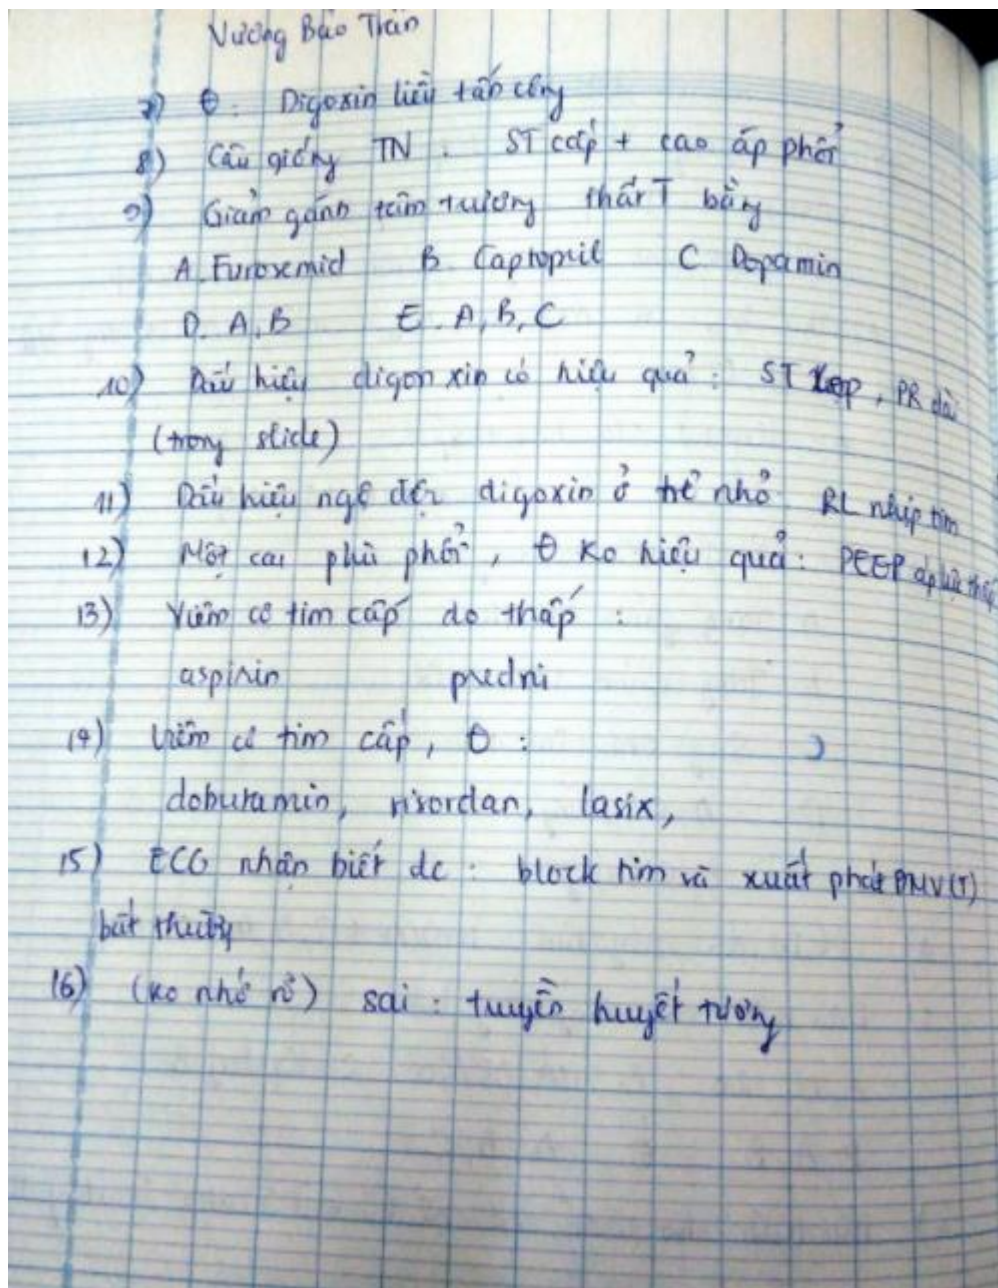 Vương Bảo Trân
7) θ. Digoxin liều tấn công
8) Câu giống TN. ST cấp + cao áp phổi
9) Giảm gánh tâm trương thất T bằng
A. Furosemid B. Captopril C. Dopamin
D. A, B E. A, B, C
10) Dấu hiệu digoxin có hiệu quả: ST, PR dài
(trong slide)
11) Dấu hiệu ngộ độc digoxin ở trẻ nhỏ RL nhịp tim
12) Một cas phù phổi, θ ko hiệu quả: PEEP áp lực thấp
13) Viêm cơ tim cấp do thấp:
aspirin predni
14) Viêm cơ tim cấp, θ:
dobutamin, risordan, lasix,
15) ECG nhận biết dc: block tim và xuất phát ĐMV(T)
bất thường
16) (ko nhớ rõ) sai: truyền huyết tương